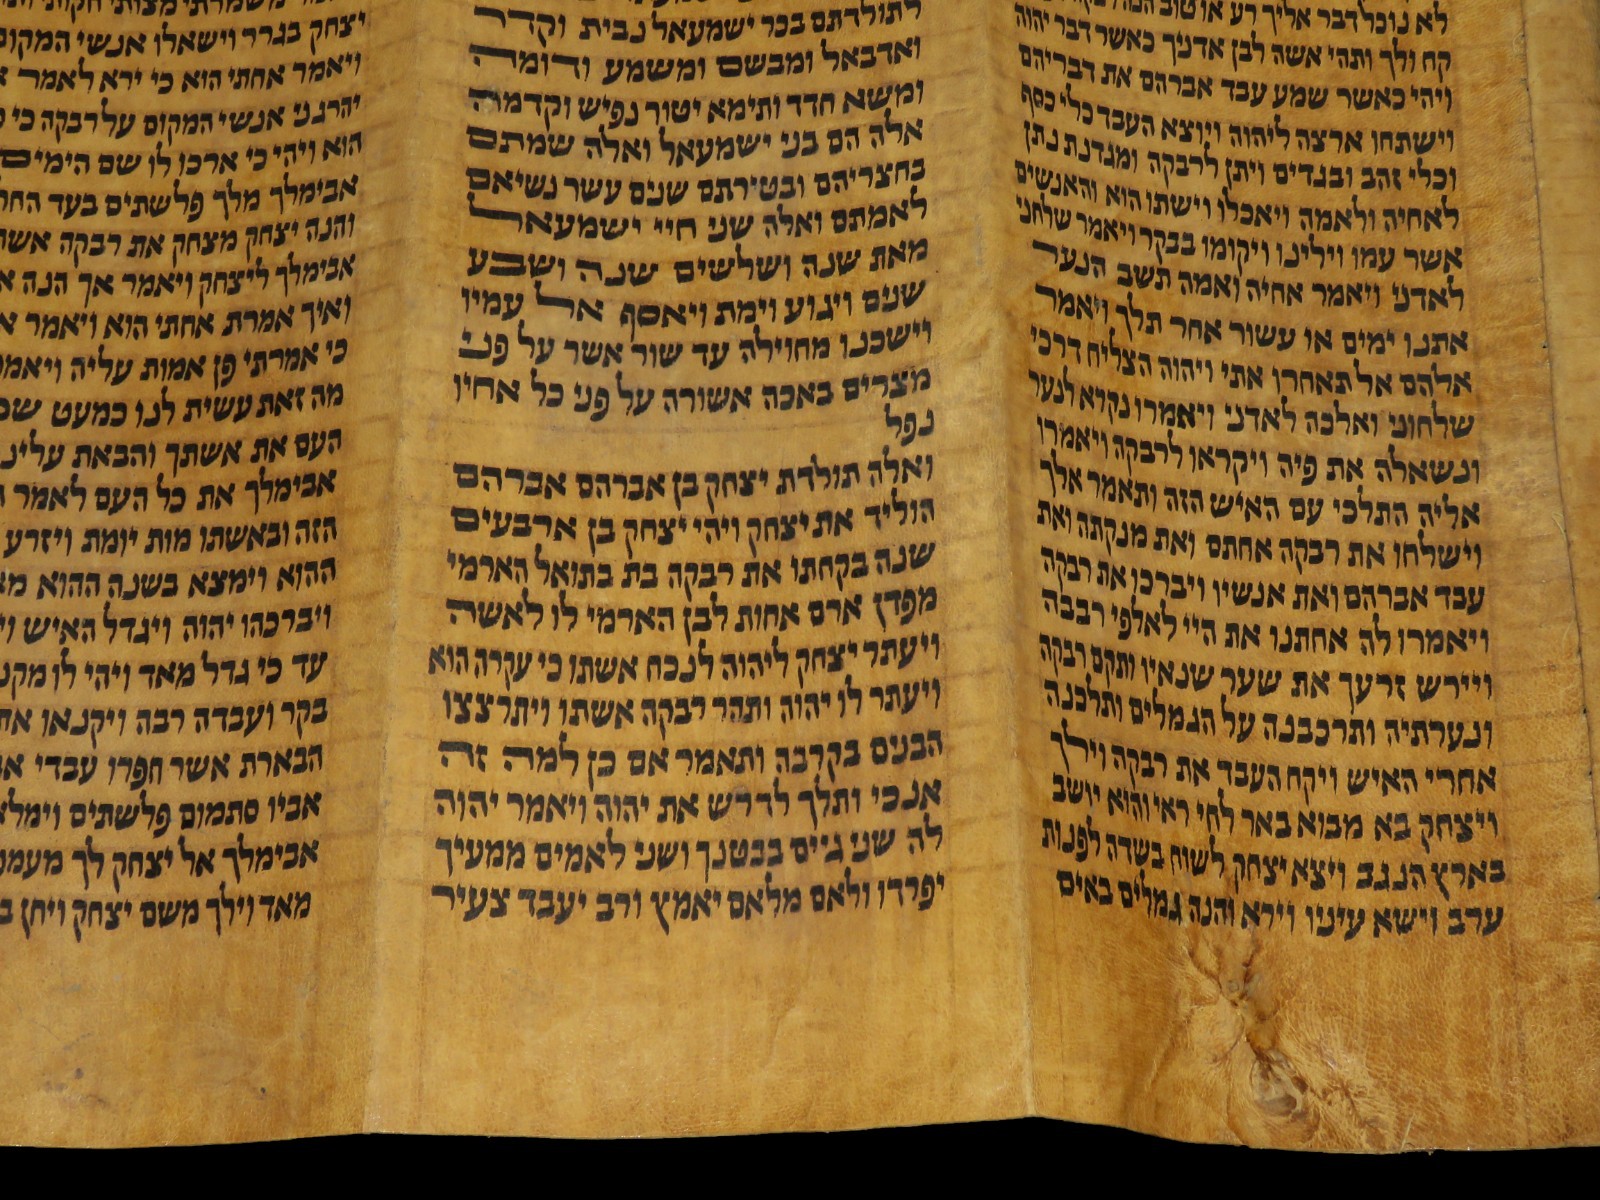 לא נוכל דבר אליך רע או טוב הנה
קח ולך ותהי אשה לבן אדניך כאשר דבר יהוה
ויהי כאשר שמע עבד אברהם את דבריהם
וישתחו ארצה ליהוה ויוצא העבד כלי כסף
וכלי זהב ובגדים ויתן לרבקה ומגדנת נתן
לאחיה ולאמה ויאכלו וישתו הוא והאנשים
אשר עמו וילינו ויקומו בבקר ויאמר שלחני
לאדני ויאמר אחיה ואמה תשב הנער
אתנו ימים או עשור אחר תלך ויאמר
אלהם אל תאחרו אתי ויהוה הצליח דרכי
שלחוני ואלכה לאדני ויאמרו נקרא לנער
ונשאלה את פיה ויקראו לרבקה ויאמרו
אליה התלכי עם האיש הזה ותאמר אלך
וישלחו את רבקה אחתם ואת מנקתה ואת
עבד אברהם ואת אנשיו ויברכו את רבקה
ויאמרו לה אחתנו את היי לאלפי רבבה
ויירש זרעך את שער שנאיו ותקם רבקה
ונערתיה ותרכבנה על הגמלים ותלכנה
אחרי האיש ויקח העבד את רבקה וילך
ויצחק בא מבוא באר לחי ראי והוא יושב
בארץ הנגב ויצא יצחק לשוח בשדה לפנות
ערב וישא עיניו וירא והנה גמלים באים
לתולדתם בכר ישמעאל נבית וקדר
ואדבאל ומבשם ומשמע ודומה
ומשא חדד ותימא יטור נפיש וקדמה
אלה הם בני ישמעאל ואלה שמתם
בחצריהם ובטירתם שנים עשר נשיאם
לאמתם ואלה שני חיי ישמעאל
מאת שנה ושלשים שנה ושבע
שנים ויגוע וימת ויאסף אל עמיו
וישכנו מחוילה עד שור אשר על פני
מצרים באכה אשורה על פני כל אחיו
נפל
ואלה תולדת יצחק בן אברהם אברהם
הוליד את יצחק ויהי יצחק בן ארבעים
שנה בקחתו את רבקה בת בתואל הארמי
מפדן ארם אחות לבן הארמי לו לאשה
ויעתר יצחק ליהוה לנכח אשתו כי עקרה הוא
ויעתר לו יהוה ותהר רבקה אשתו ויתרצצו
הבנים בקרבה ותאמר אם כן למה זה
אנכי ותלך לדרש את יהוה ויאמר יהוה
לה שני גיים בבטנך ושני לאמים ממעיך
יפרדו ולאם מלאם יאמץ ורב יעבד צעיר
משמרתי מצותי חקותי
יצחק בגרר וישאלו אנשי המקום
ויאמר אחתי הוא כי ירא לאמר
יהרגני אנשי המקום על רבקה כי
הוא ויהי כי ארכו לו שם הימים
אבימלך מלך פלשתים בעד
והנה יצחק מצחק את רבקה
אבימלך ליצחק ויאמר אך הנה
ואיך אמרת אחתי הוא ויאמר
כי אמרתי פן אמות עליה
מה זאת עשית לנו כמעט
העם את אשתך והבאת
אבימלך את כל העם לאמר
הזה ובאשתו מות יומת ויזרע
ההוא וימצא בשנה ההוא
ויברכהו יהוה ויגדל האיש
עד כי גדל מאד ויהי לו
בקר ועבדה רבה ויקנאו
הבארת אשר חפרו עבדי
אביו סתמום פלשתים
אבימלך אל יצחק לך
מאד וילך משם יצחק ויחן